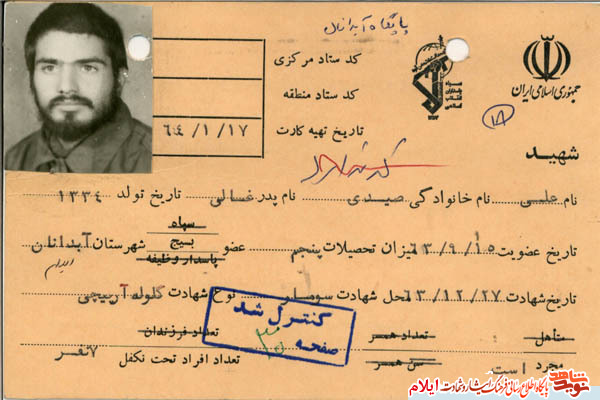 پایگاه آبدانان
جمهوری اسلامی ایران
سپاه پاسداران انقلاب اسلامی
کد ستاد مرکزی
کد ستاد منطقه
تاریخ تهیه کارت ۶۴/۱/۱۷
۱۸
شهید
نام علی نام خانوادگی صیدی نام پدر غسالی تاریخ تولد ۱۳۳۴
تاریخ عضویت ۶۳/۹/۱۵ میزان تحصیلات پنجم عضو سپاه بسیج پاسدار وظیفه شهرستان آبدانان
ایلام
تاریخ شهادت ۶۳/۱۲/۲۷ محل شهادت نوع شهادت گلوله آرپیچی
کنترل شد
صفحه
متأهل تعداد همسر تعداد فرزندان
مجرد است سن همسر تعداد افراد تحت تکفل ۷ نفر
نوید شاهد پایگاه اطلاع رسانی فرهنگ ایثار و شهادت ایلام